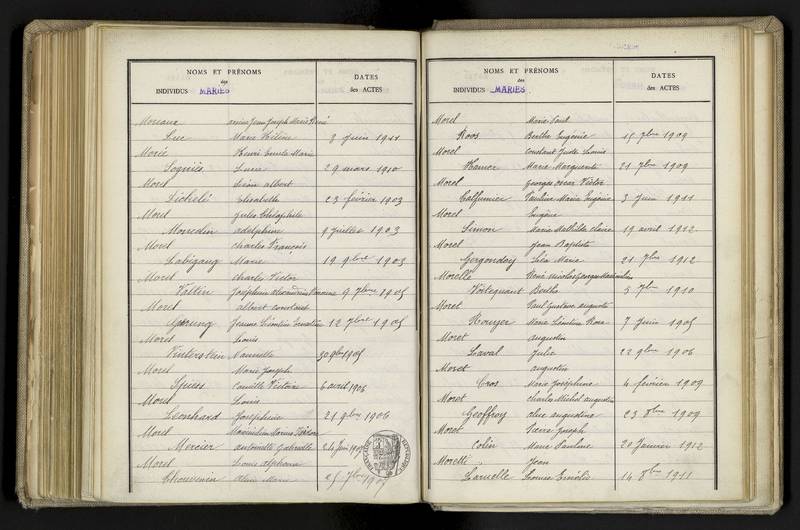 NOMS ET PRÉNOMS
des
INDIVIDUS MARIÉS
DATES
des ACTES
Moreaux Jean Joseph Marie René
Luc Marie Hélène 8 Juin 1911
Morée Henri Emile Marie
29 mars 1910
Morel Léon albert
Elisabeth 23 février 1903
Morel Jules Théophile
adelphine 9 juillet 1903
Morel Charles François
Labigang Marie 19 9bre 1903
Morel Charles Victor
Valtin Joséphine alexandrine 9 7bre 1905
Morel albert constant
Jeanne Léontine 12 7bre 1905
Morel Louis
Vinterstein 30 9bre 1905
Morel Marie Joseph
Spiess Camille Victoire 6 avril 1906
Morel Louis
Leonhard Joséphine 21 9bre 1906
Morel Maximilien Marius
Mercier antoinette Gabrielle 24 Juin 1907
Morel Louis alphonse
Thouvenin Marie 25 7bre 1907
NOMS ET PRÉNOMS
des
INDIVIDUS MARIÉS
DATES
des ACTES
Morel Marie Paul
Roos Berthe Eugénie 15 7bre 1909
Morel Constant Juste Louis
Hamer Marie Marguerite 21 7bre 1909
Morel Georges oscar Victor
Pauline Marie Eugénie 3 Juin 1911
Morel Eugène
Simon Marie Mathilde claire 19 avril 1912
Morel Jean Baptiste
Gergonday Marie 21 7bre 1912
Morelle René nicolas Georges Maximilien
Berthe 5 7bre 1910
Morel Paul Gustave auguste
Marie Léontine Rose 7 Juin 1905
Moret augustin
Laval Julie 22 9bre 1906
Moret augustin
Cros Marie Joséphine 4 février 1909
Moret Charles Michel augustin
Geoffroy augustine 23 8bre 1909
Moret Pierre Joseph
Colin Marie Pauline 20 Janvier 1912
Moretti Jean
Laruelle Louise 14 8bre 1911